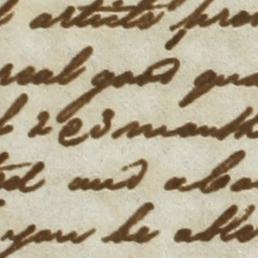 article
real good qua
2 & 3 month
and abo
you be able